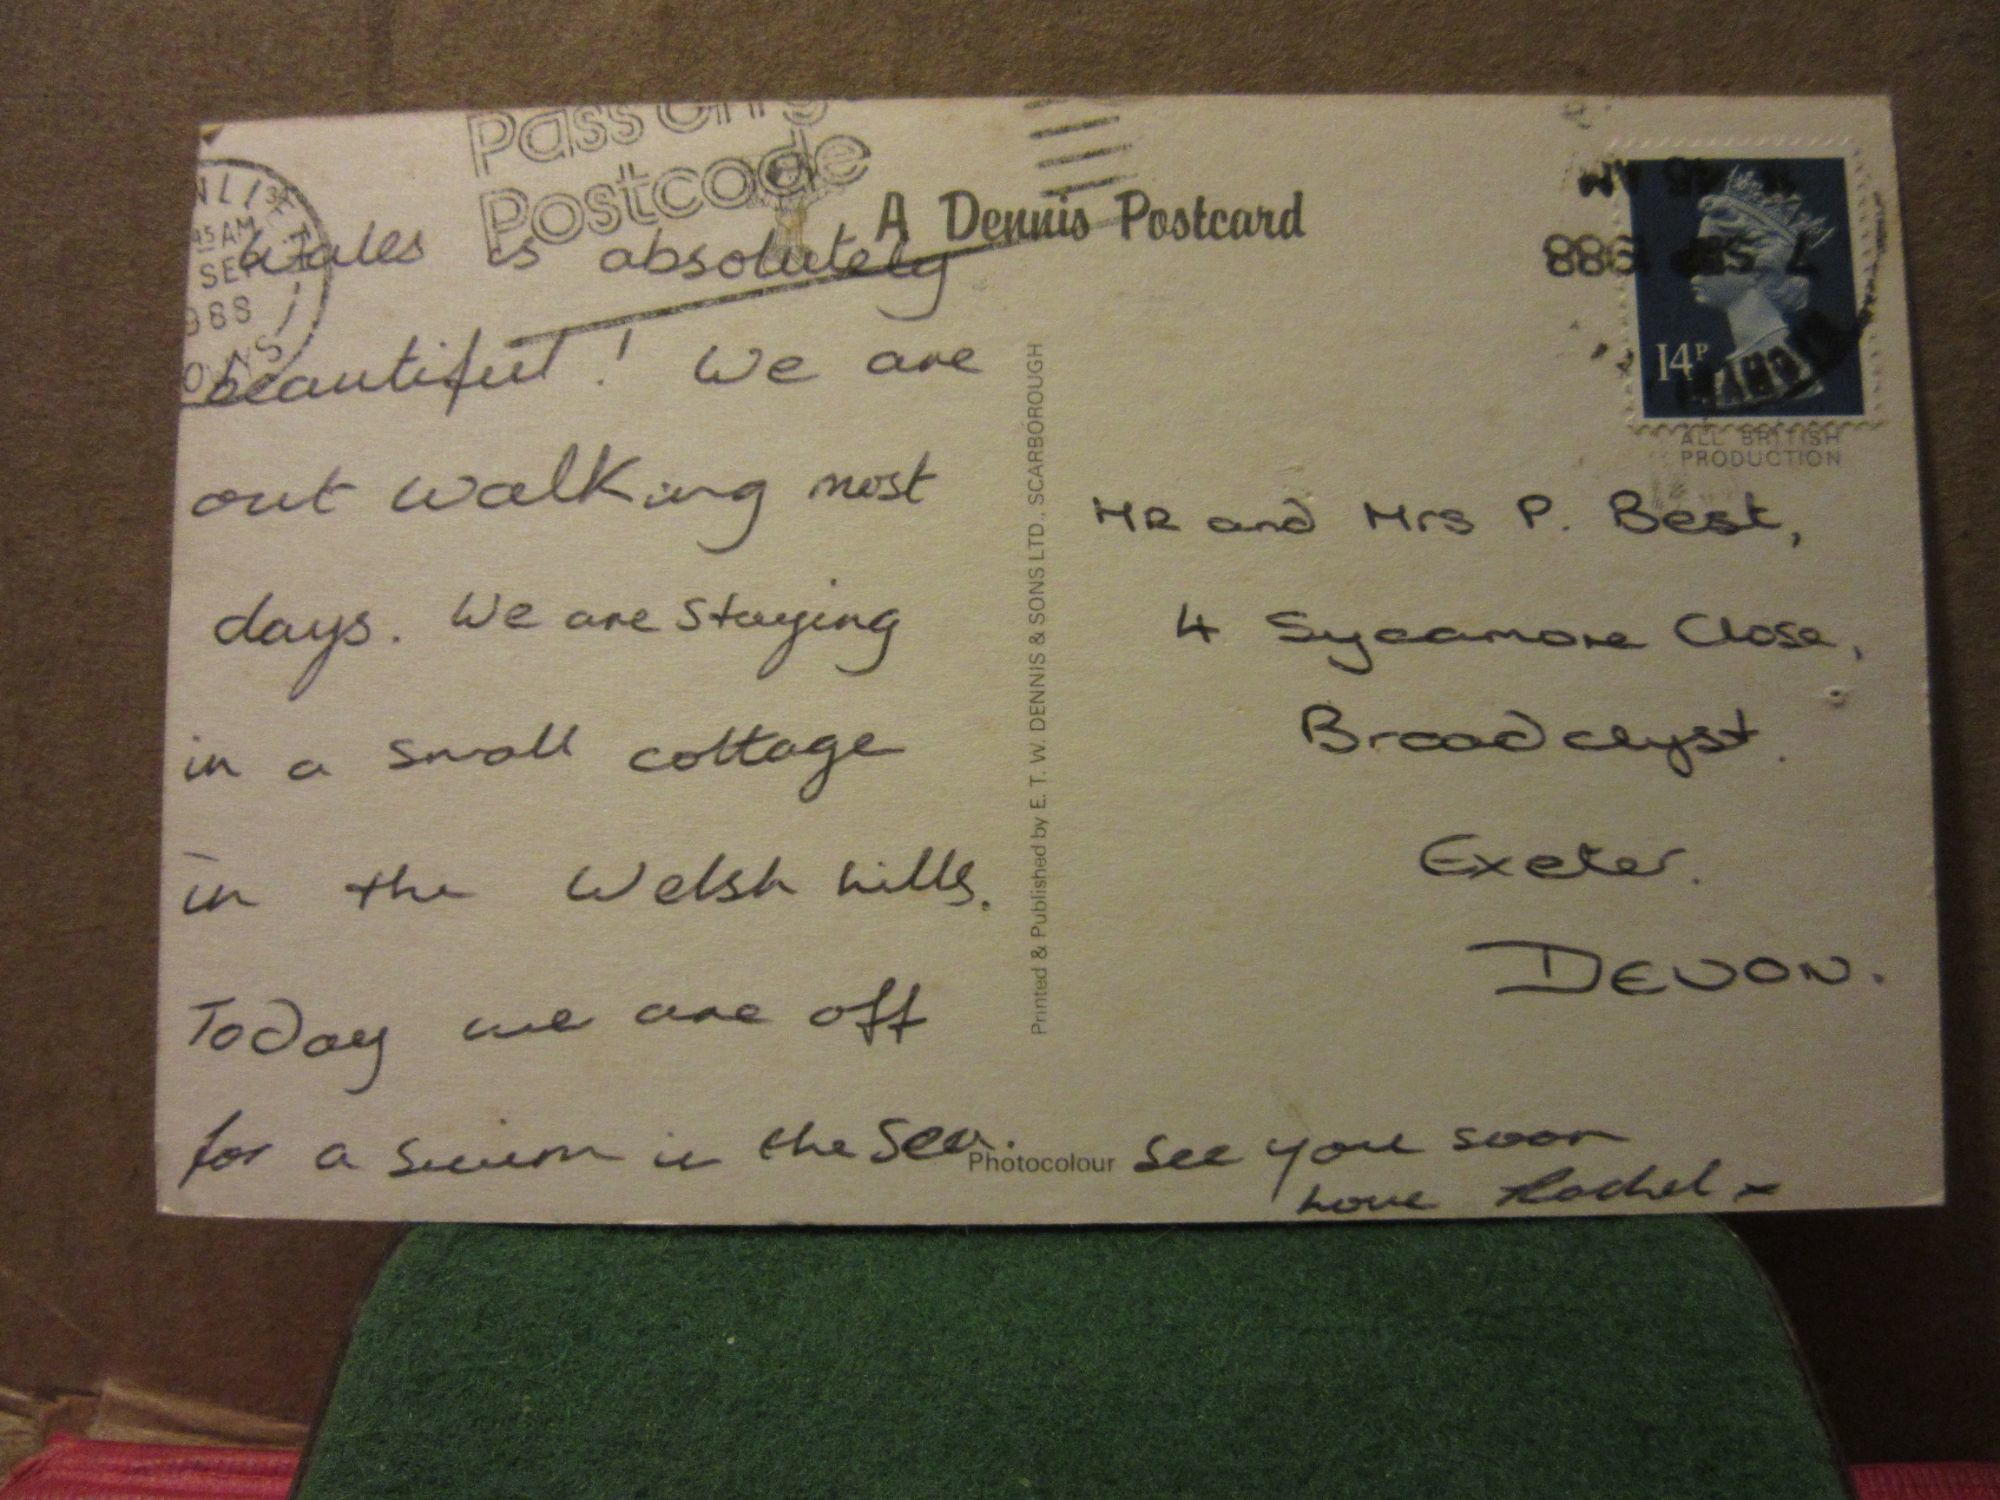 Pass on y
Postcode
A Dennis Postcard
45 AM
SEP
988
Wales is absolutely
beautiful! We are
out walking most
days. We are staying
in a small cottage
in the Welsh hills.
Today we are off
for a swim in the Sea.
See you soon
Love Rachel x
Printed & Published by E. T. W. DENNIS & SONS LTD., SCARBOROUGH
Photocolour
7 SEP 1988
14P
ALL BRITISH
PRODUCTION
MR and Mrs P. Best,
4 Sycamore Close,
Broadclyst.
Exeter.
DEVON.